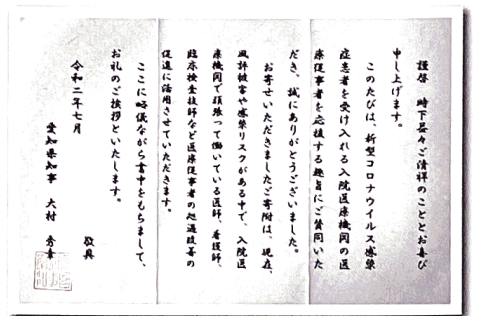 謹啓　時下益々ご清祥のこととお喜び
申し上げます。
このたびは、新型コロナウイルス感染
症患者を受け入れる入院医療機関の医
療従事者を応援する趣旨にご賛同いた
だき、誠にありがとうございました。
お寄せいただきましたご寄附は、現在、
風評被害や感染リスクがある中で、入院医
療機関で頑張って働いている医師、看護師、
臨床検査技師など医療従事者の処遇改善の
促進に活用させていただきます。
ここに略儀ながら書中をもちまして、
お礼のご挨拶といたします。
敬具
令和二年七月
愛知県知事　大村　秀章